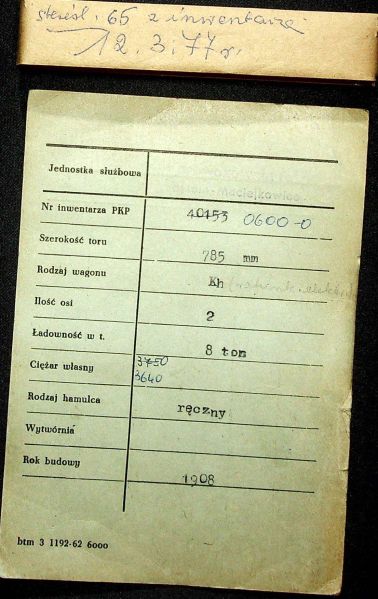 skreśl. 65 z inwentarza
12.3.77 r.
Jednostka służbowa
Maciejkowice
Nr inwentarza PKP 40153 0600-0
Szerokość toru 785 mm
Rodzaj wagonu Kh
Ilość osi 2
Ładowność w t. 8 ton
Ciężar własny 3750
3640
Rodzaj hamulca ręczny
Wytwórnia
Rok budowy 1908
btm 3 1192-62 6000